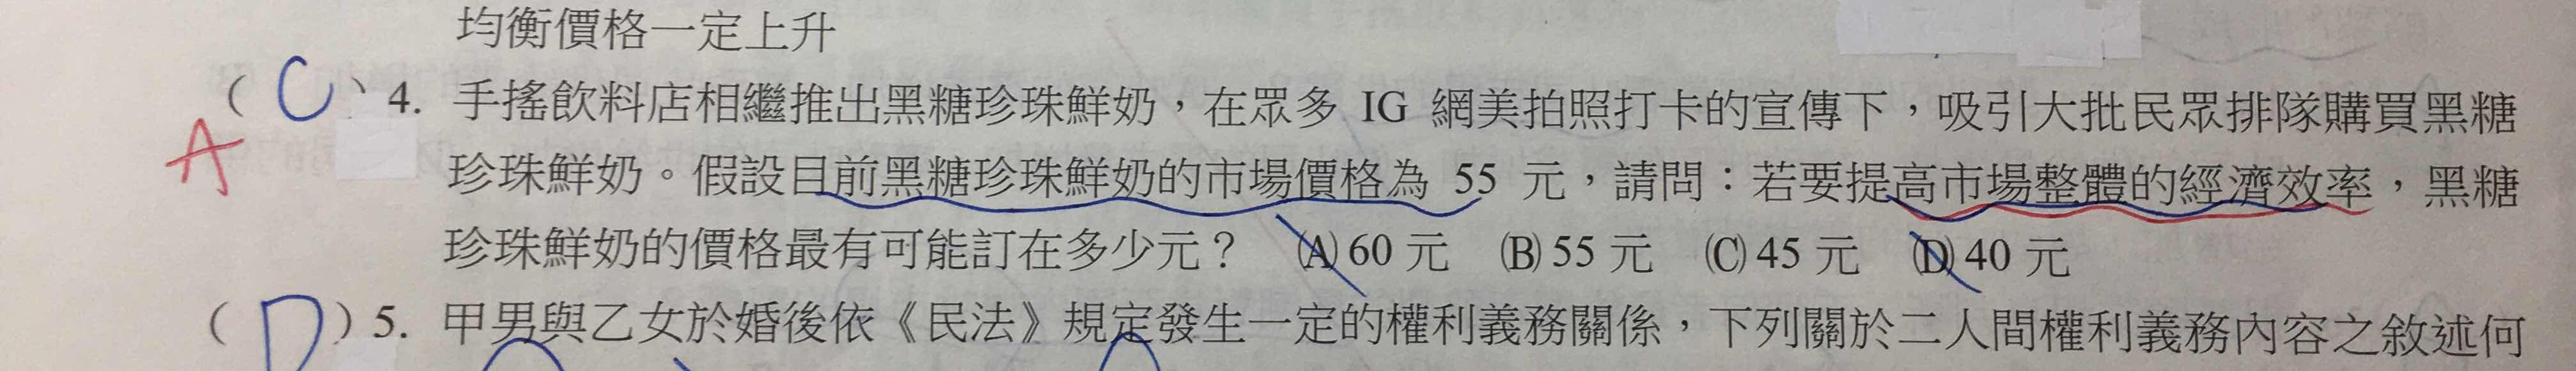 均衡價格一定上升
( C ) 4. 手搖飲料店相繼推出黑糖珍珠鮮奶,在眾多 IG 網美拍照打卡的宣傳下,吸引大批民眾排隊購買黑糖
A
珍珠鮮奶。假設目前黑糖珍珠鮮奶的市場價格為 55 元,請問:若要提高市場整體的經濟效率,黑糖
珍珠鮮奶的價格最有可能訂在多少元? (A) 60 元 (B) 55 元 (C) 45 元 (D) 40 元
( D ) 5. 甲男與乙女於婚後依《民法》規定發生一定的權利義務關係,下列關於二人間權利義務內容之敘述何